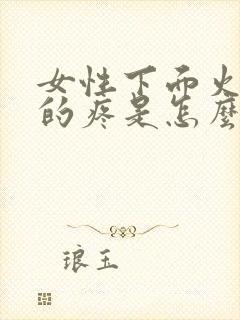 女性下而火
的疼是怎麼
琅玉